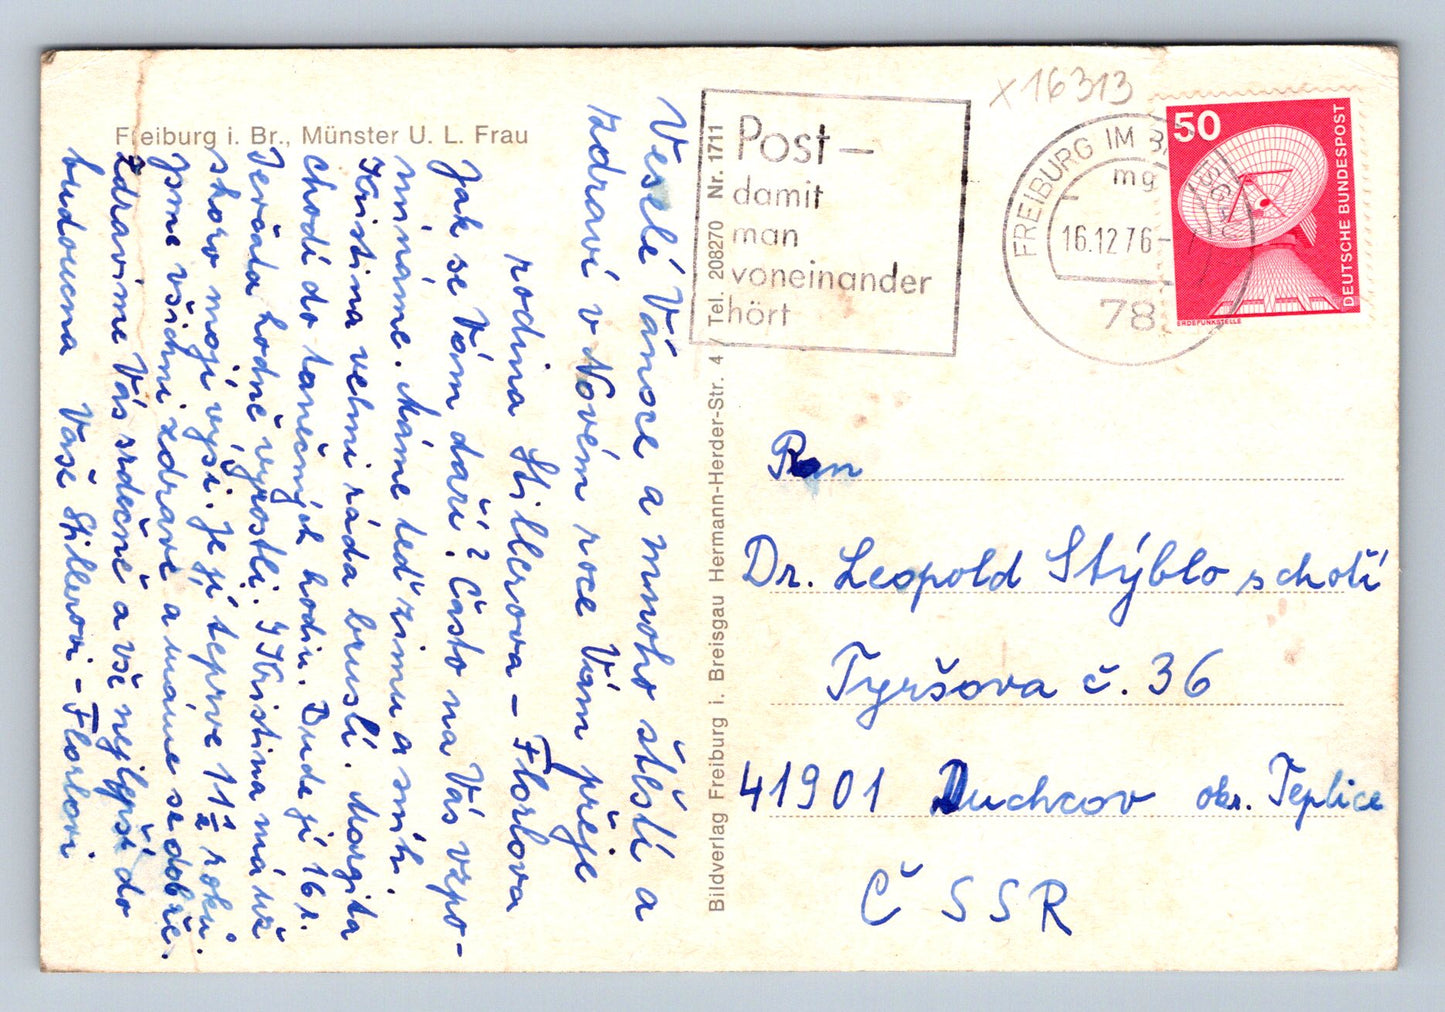 Freiburg i. Br., Münster U. L. Frau
Veselé Vánoce a mnoho štěstí a
zdraví v Novém roce Vám přeje
rodina Stillerova – Florlova
Jak se Vám daří? Často na Vás vzpo-
mínáme. Máme teď zimu a sníh.
Kristina velmi ráda bruslí. Margita
chodí do tanečných hodin. Bude jí 16 r.
Terčáda hodně vyrostli. I Kristina má už
skoro moji výši. Je jí teprve 11 1/2 roků.
Jsme všichni zdravé a máme se dobře.
Zdravíme Vás srdečně a vše nejlepší do
budoucna Vaše Stillerovi – Florlovi
Bildverlag Freiburg i. Breisgau Hermann-Herder-Str. 4 / Tel. 208270 Nr. 1711
Post –
damit
man
voneinander
hört
x 16313
FREIBURG IM BREISGAU
mg
16.12.76-
78
50
DEUTSCHE BUNDESPOST
ERDEFUNKSTELLE
Pan
Dr. Leopold Stýblo s chotí
Tyršova č. 36
41901 Duchcov okr. Teplice
ČSSR